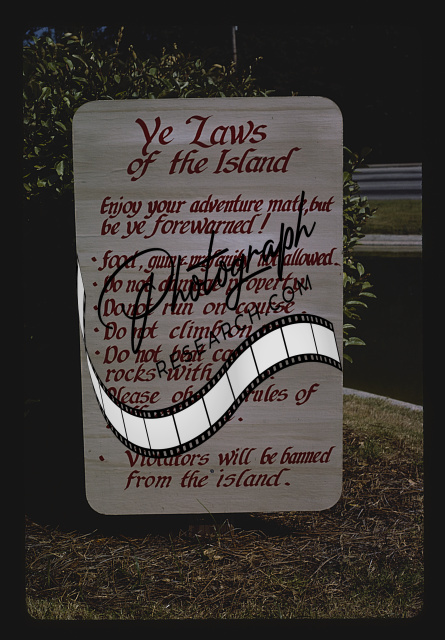 Ye Laws
of the Island
Enjoy your adventure mate, but
be ye forewarned!
• Food, gum not allowed.
• Do not damage property
• Do not run on course
• Do not climb on
• Do not
rocks with
Please rules of
• Violators will be banned
from the island.
Photograph
RESEARCH.COM